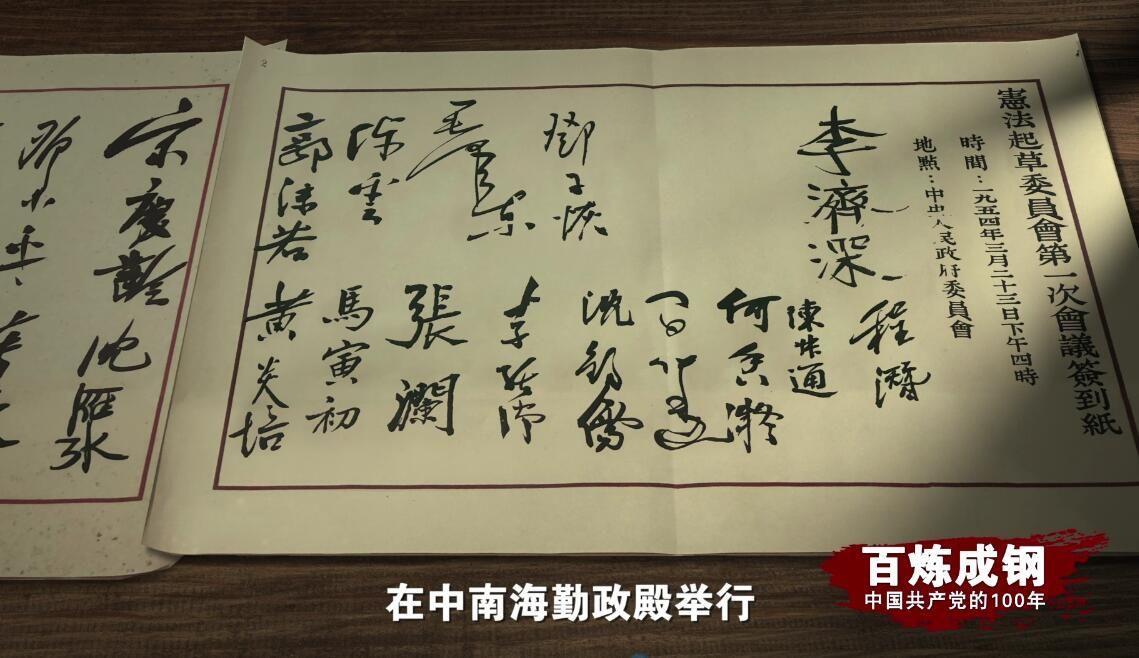 憲法起草委員會第一次會議簽到紙
時間：一九五四年三月二十三日下午四時
地點：中央人民政府委員會
李濟深
程潛
陳叔通
何香凝
鄧子恢
沈鈞儒
毛澤東
張瀾
陳雲
馬寅初
郭沫若
黄炎培
宋慶齡
沈雁冰
鄧小平
在中南海勤政殿举行
百炼成钢
中国共产党的100年